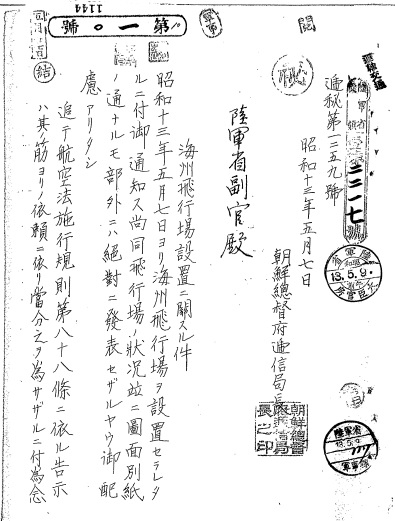 1144
第一〇號
閲
陸軍省
二二一七號
遞秘第二五九號
昭和十三年五月七日
陸軍省
13.5.9.
朝鮮總督府遞信局長
朝鮮總督
府遞信局
長之印
陸軍省
13.5.9
陸軍省副官殿
海州飛行場設置ニ關スル件
昭和十三年五月七日ヨリ海州飛行場ヲ設置セラレタ
ルニ付御通知ス尚同飛行場ノ狀況並ニ圖面別紙
ノ通ナルモ部外ニハ絕對ニ發表セザルヤウ御配
慮アリタシ
追テ航空法施行規則第八十八條ニ依ル告示
ハ其ノ筋ヨリノ依賴ニ依リ當分之ヲ為サザルニ付為念
結